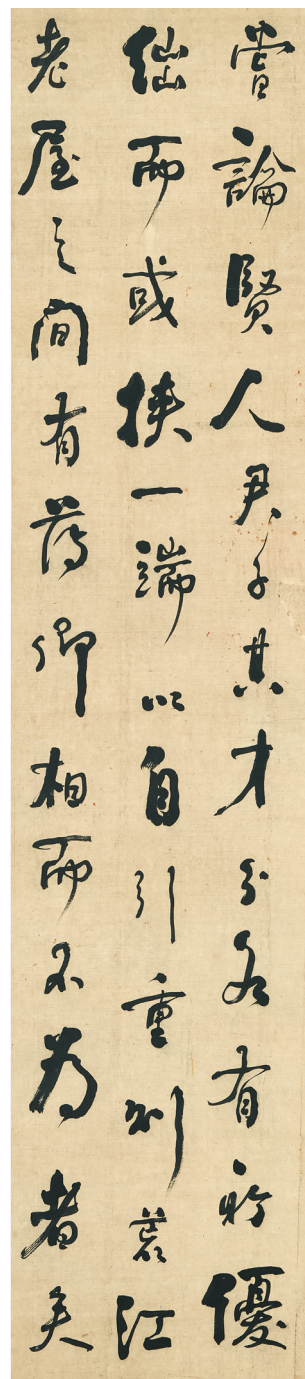 嘗論賢人君子其才分各有所優
絀而或挾一端以自引重則荒江
老屋之間有薄卿相而不為者矣